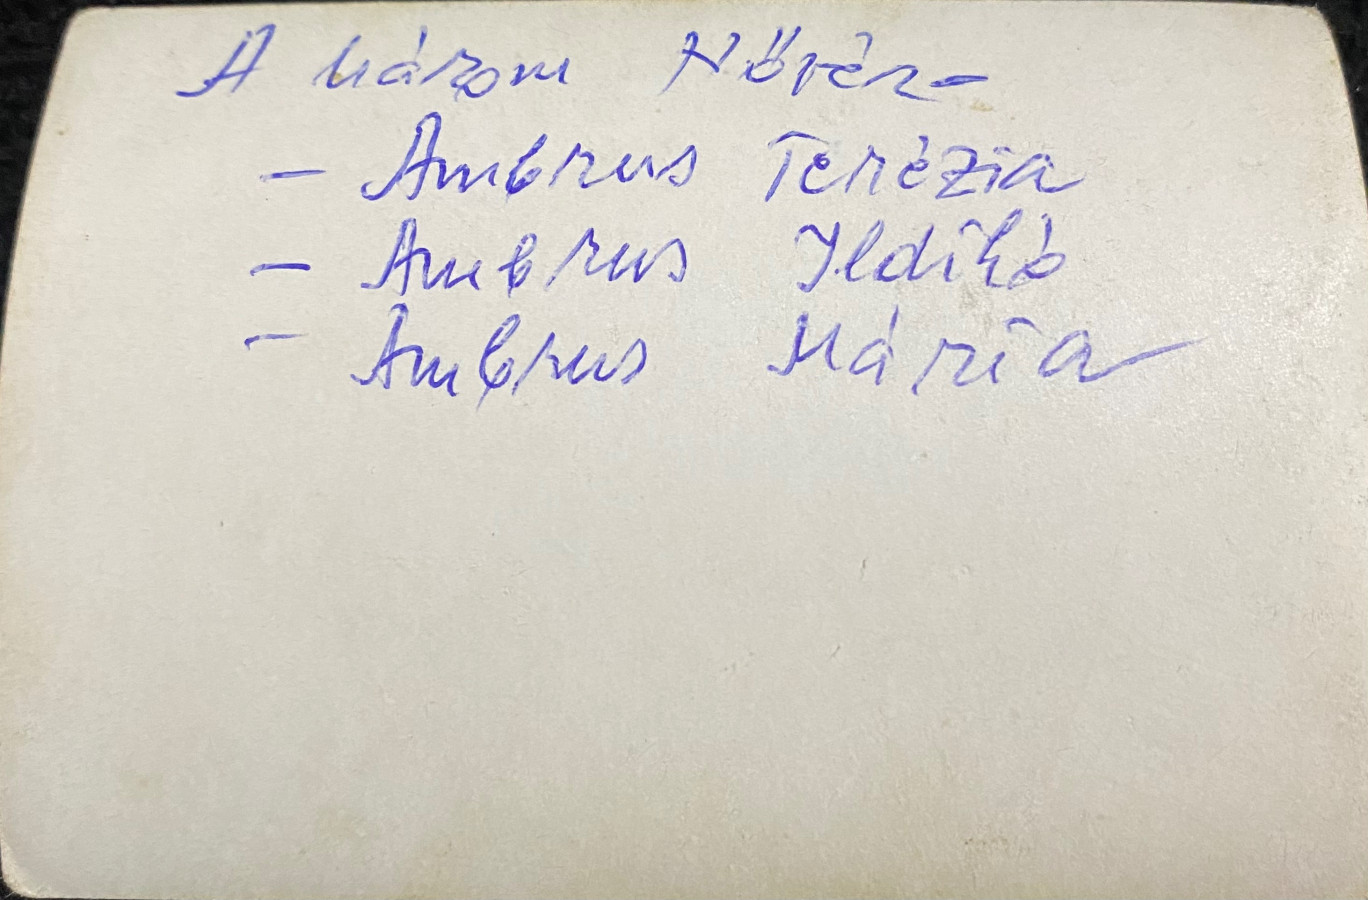 A három Nővér-
- Ambrus Terézia
- Ambrus Ildikó
- Ambrus Mária